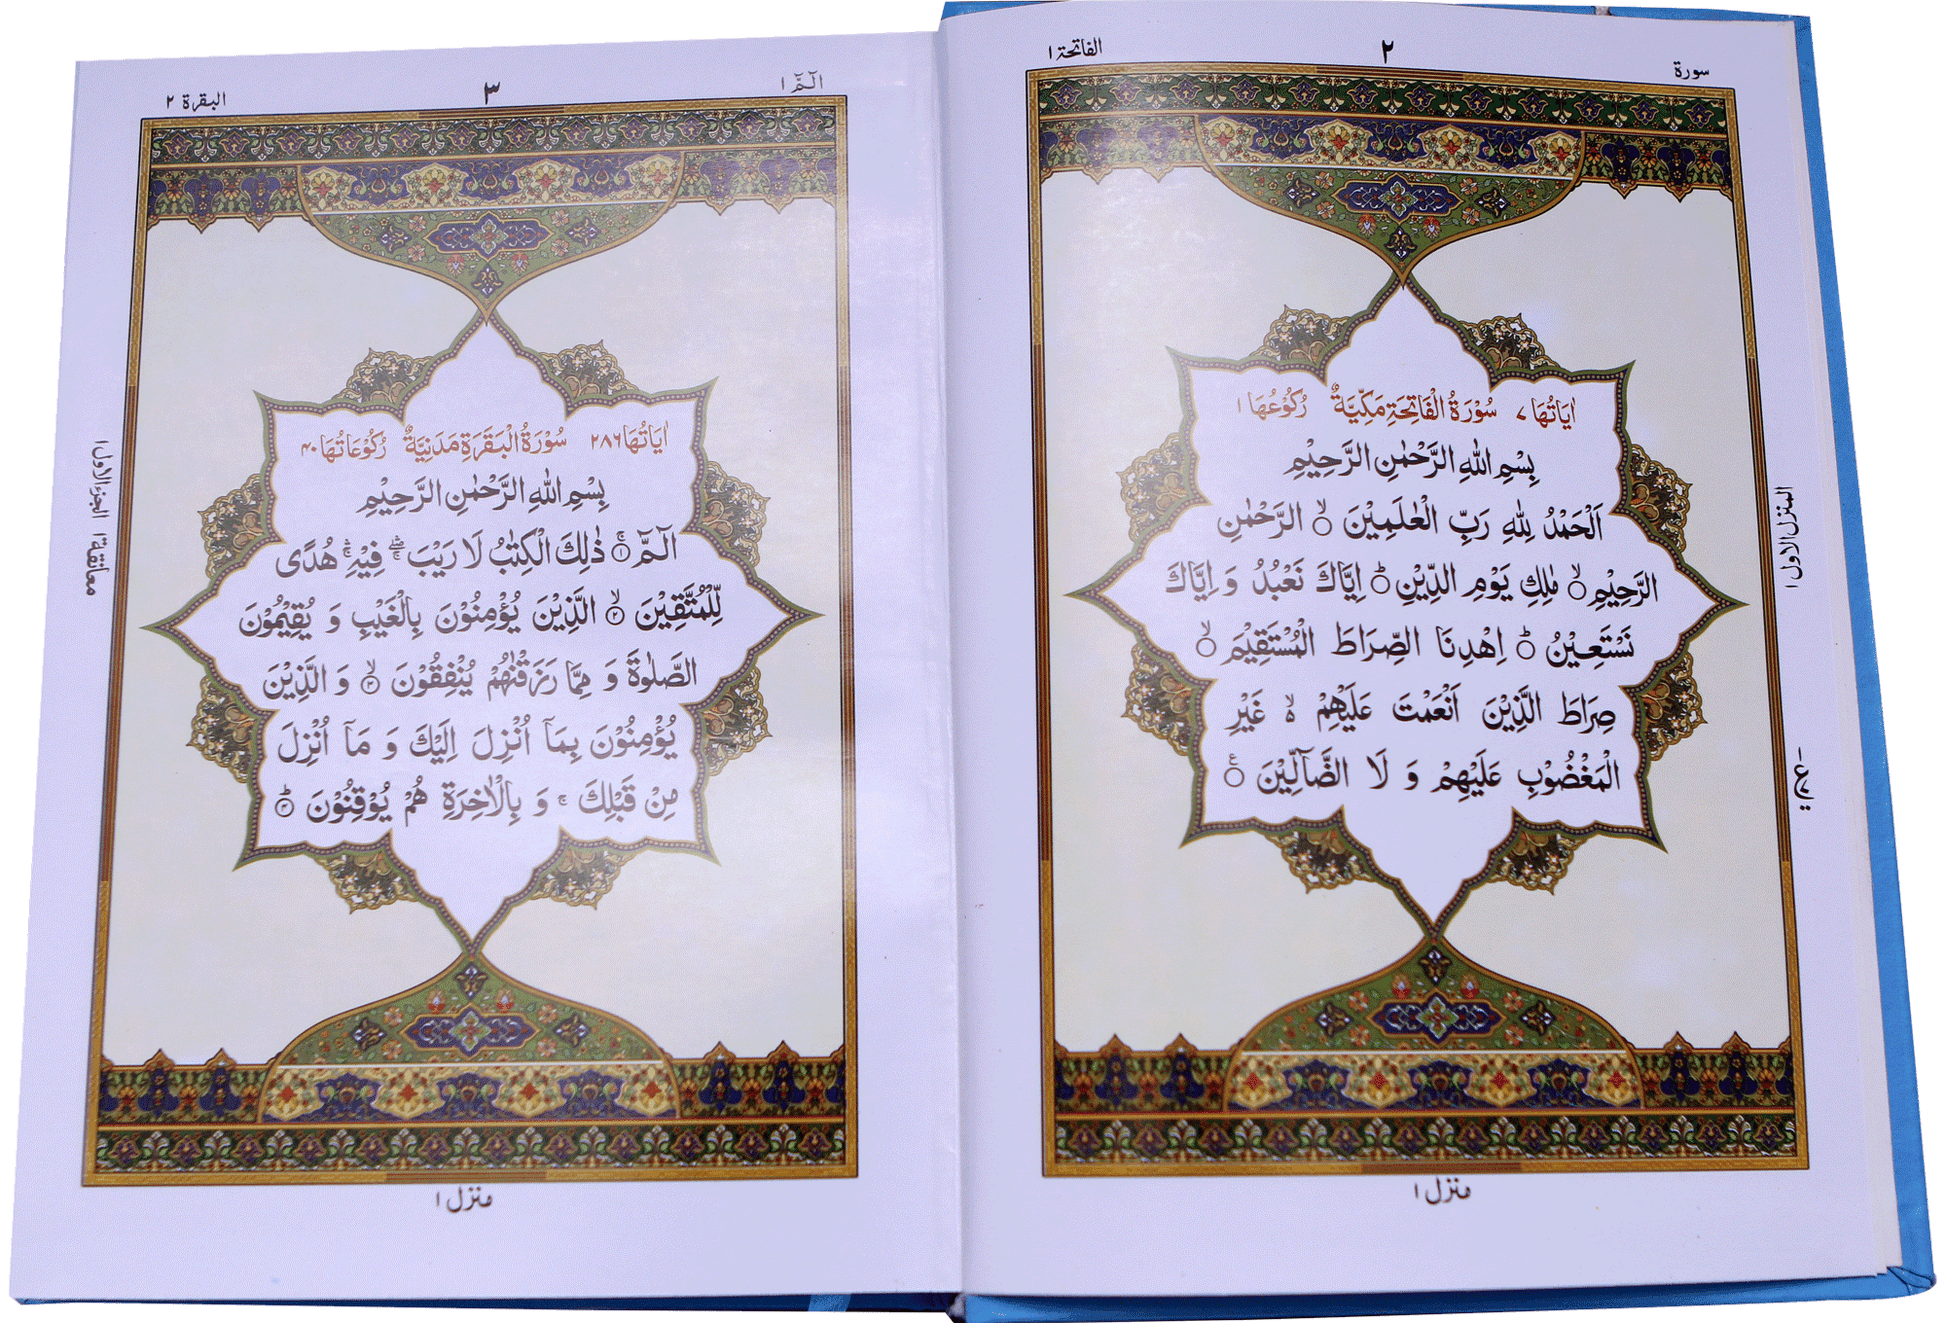 سورة
٢
الفاتحة ١
اٰيَاتُهَا ٧ سُوْرَةُ الْفَاتِحَةِ مَكِّيَّةٌ رُكُوْعُهَا ١
بِسْمِ اللّٰهِ الرَّحْمٰنِ الرَّحِيْمِ
اَلْحَمْدُ لِلّٰهِ رَبِّ الْعٰلَمِيْنَ ۙ الرَّحْمٰنِ
الرَّحِيْمِ ۙ مٰلِكِ يَوْمِ الدِّيْنِ ؕ اِيَّاكَ نَعْبُدُ وَ اِيَّاكَ
نَسْتَعِيْنُ ؕ اِهْدِنَا الصِّرَاطَ الْمُسْتَقِيْمَ ۙ
صِرَاطَ الَّذِيْنَ اَنْعَمْتَ عَلَيْهِمْ ۙ۬ غَيْرِ
الْمَغْضُوْبِ عَلَيْهِمْ وَ لَا الضَّآلِّيْنَ
المنزل الاول ١
منزل ١
الٓمّٓ ١
٣
البقرة ٢
اٰيَاتُهَا ٢٨٦ سُوْرَةُ الْبَقَرَةِ مَدَنِيَّةٌ رُكُوْعَاتُهَا ٤٠
بِسْمِ اللّٰهِ الرَّحْمٰنِ الرَّحِيْمِ
الٓمّٓ ۚ ١ ذٰلِكَ الْكِتٰبُ لَا رَيْبَ ۛۖۚ فِيْهِ ۛۚ هُدًى
لِّلْمُتَّقِيْنَ ۙ ٢ الَّذِيْنَ يُؤْمِنُوْنَ بِالْغَيْبِ وَ يُقِيْمُوْنَ
الصَّلٰوةَ وَ مِمَّا رَزَقْنٰهُمْ يُنْفِقُوْنَ ۙ ٣ وَ الَّذِيْنَ
يُؤْمِنُوْنَ بِمَاۤ اُنْزِلَ اِلَيْكَ وَ مَاۤ اُنْزِلَ
مِنْ قَبْلِكَ ۚ وَ بِالْاٰخِرَةِ هُمْ يُوْقِنُوْنَ ؕ ٤
معانقة ١ الجزء الاول ١
منزل ١